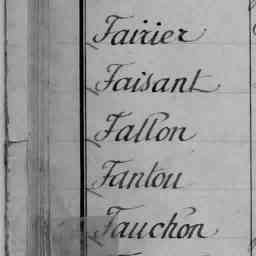 Fairier
Faisant
Fallon
Fantou
Fauchon